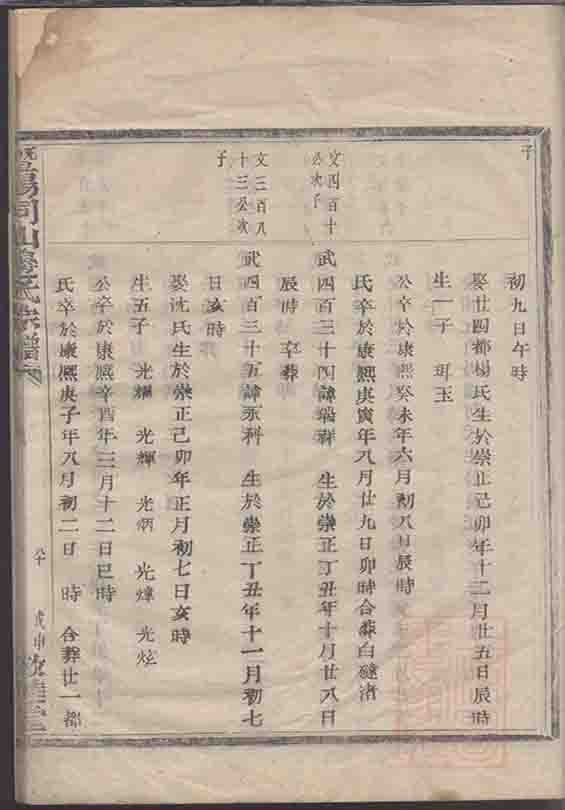 子
初九日午時
娶廿四都楊氏生於崇正己卯年十二月廿五日辰時
生一子 珥玉
公卒於康熙癸未年六月初八日辰時
氏卒於康熙庚寅年八月廿九日卯時合葬白
文四百十
公次子
武四百三十四諱瑞 生於崇正丁丑年十月廿八日
辰時 卒葬
文三百八
十三公次
子
武四百三十五諱永科 生於崇正丁丑年十一月初七
日亥時
娶沈氏生於崇正己卯年正月初七日亥時
生五子 光耀 光輝 光炳 光煒 光炫
公卒於康熙辛酉年三月十二日巳時
氏卒於康熙庚子年八月初二日 時 合葬廿一都
暨陽同山氏宗譜
八十
戊申